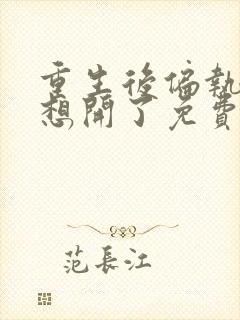 重生後偏執
想開了免費
范長江